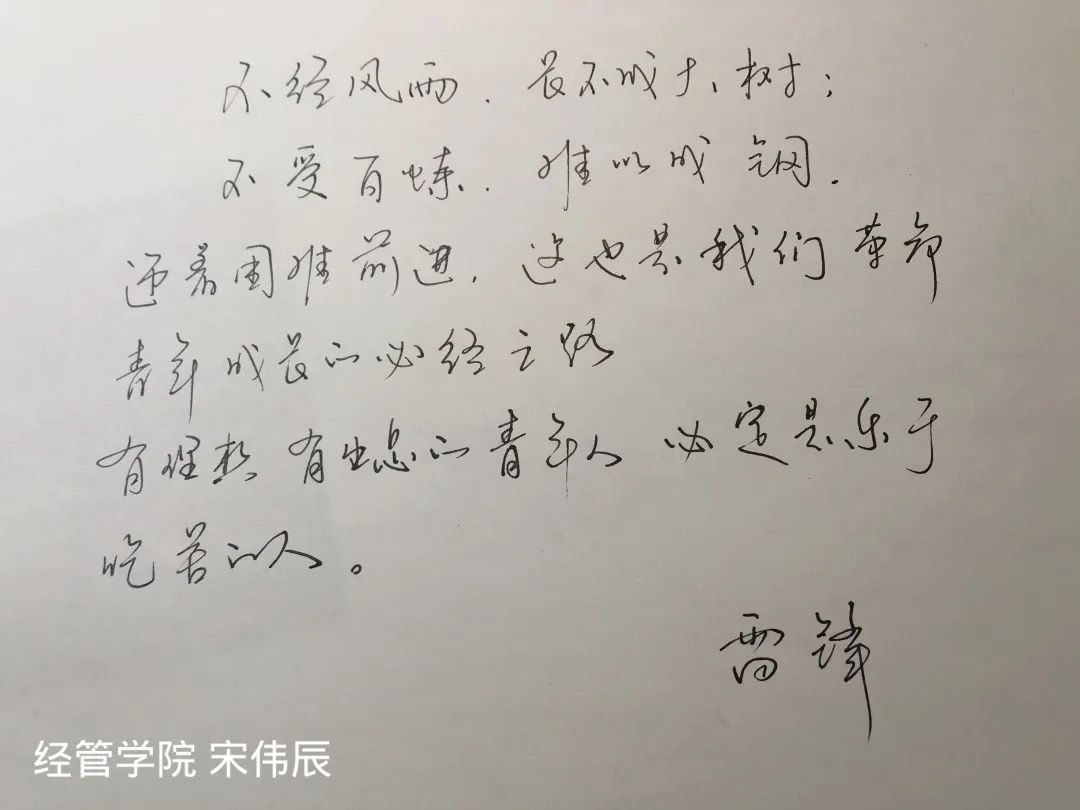 不经风雨，长不成大树；
不受百炼，难以成钢.
迎着困难前进，这也是我们革命
青年成长的必经之路
有理想有出息的青年人必定是乐于
吃苦的人。
雷锋
经管学院 宋伟辰